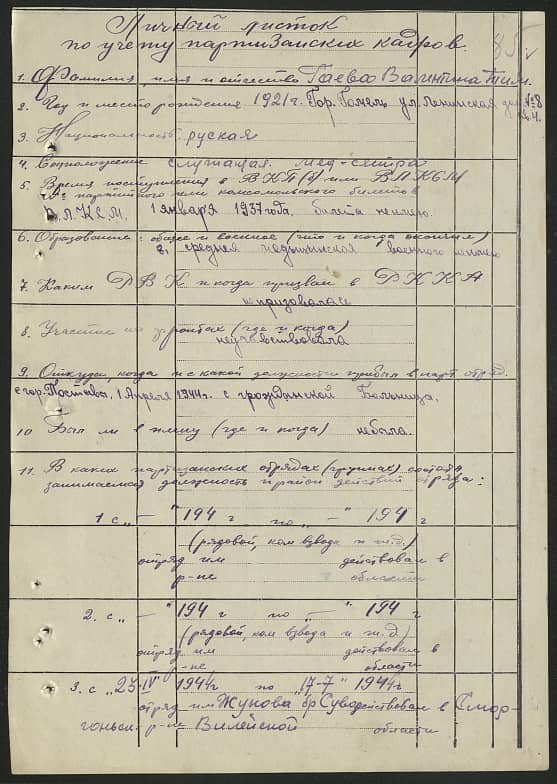 Личный листок
по учету партизанских кадров.
85
1. Фамилия, имя и отчество Гаева Валинтина Тим.
2. Год и место рождения 1921 г. Гор. Гомель ул. Ленинская дом №8
кв. 4.
3. Национальность руская
4. Соцположение служащая. мед-сестра
5. Время поступления в ВКП(б) или ВЛКСМ
№ партийного или комсомольского билетов
В.Л.К.С.М. 1 января 1937 года. билета неимею.
6. Образование: общее и военное (что и когда окончил)
средняя медицинская военного неимею
7. Каким РВК и когда призван в РККА
непризовалась
8. Участие на фронтах (где и когда)
неучавствовала
9. Откуда, когда и с какой должности прибыл в парт. отряд.
с гор. Поставы, 1 Апреля 1944 г. с гражданской Больница.
10 Был ли в плену (где и когда) небыла.
11. В каких партизанских отрядах (группах) состоял
занимаемая должность и район действий отряда:
1 с „ — " 194 г по „ — " 194 г
(рядовой, ком взвода и т.д.)
отряд им действовал в
р-не области
2. с „ — " 194 г по „ — " 194 г
(рядовой, ком взвода и т.д.)
отряд им действовал в
р-не области
3. с „ 23-IV " 1944 г по „ 17-7 " 1944 г
отряд им Жукова бр Сувор действовал в Смор-
гоньск. р-не Вилейской области